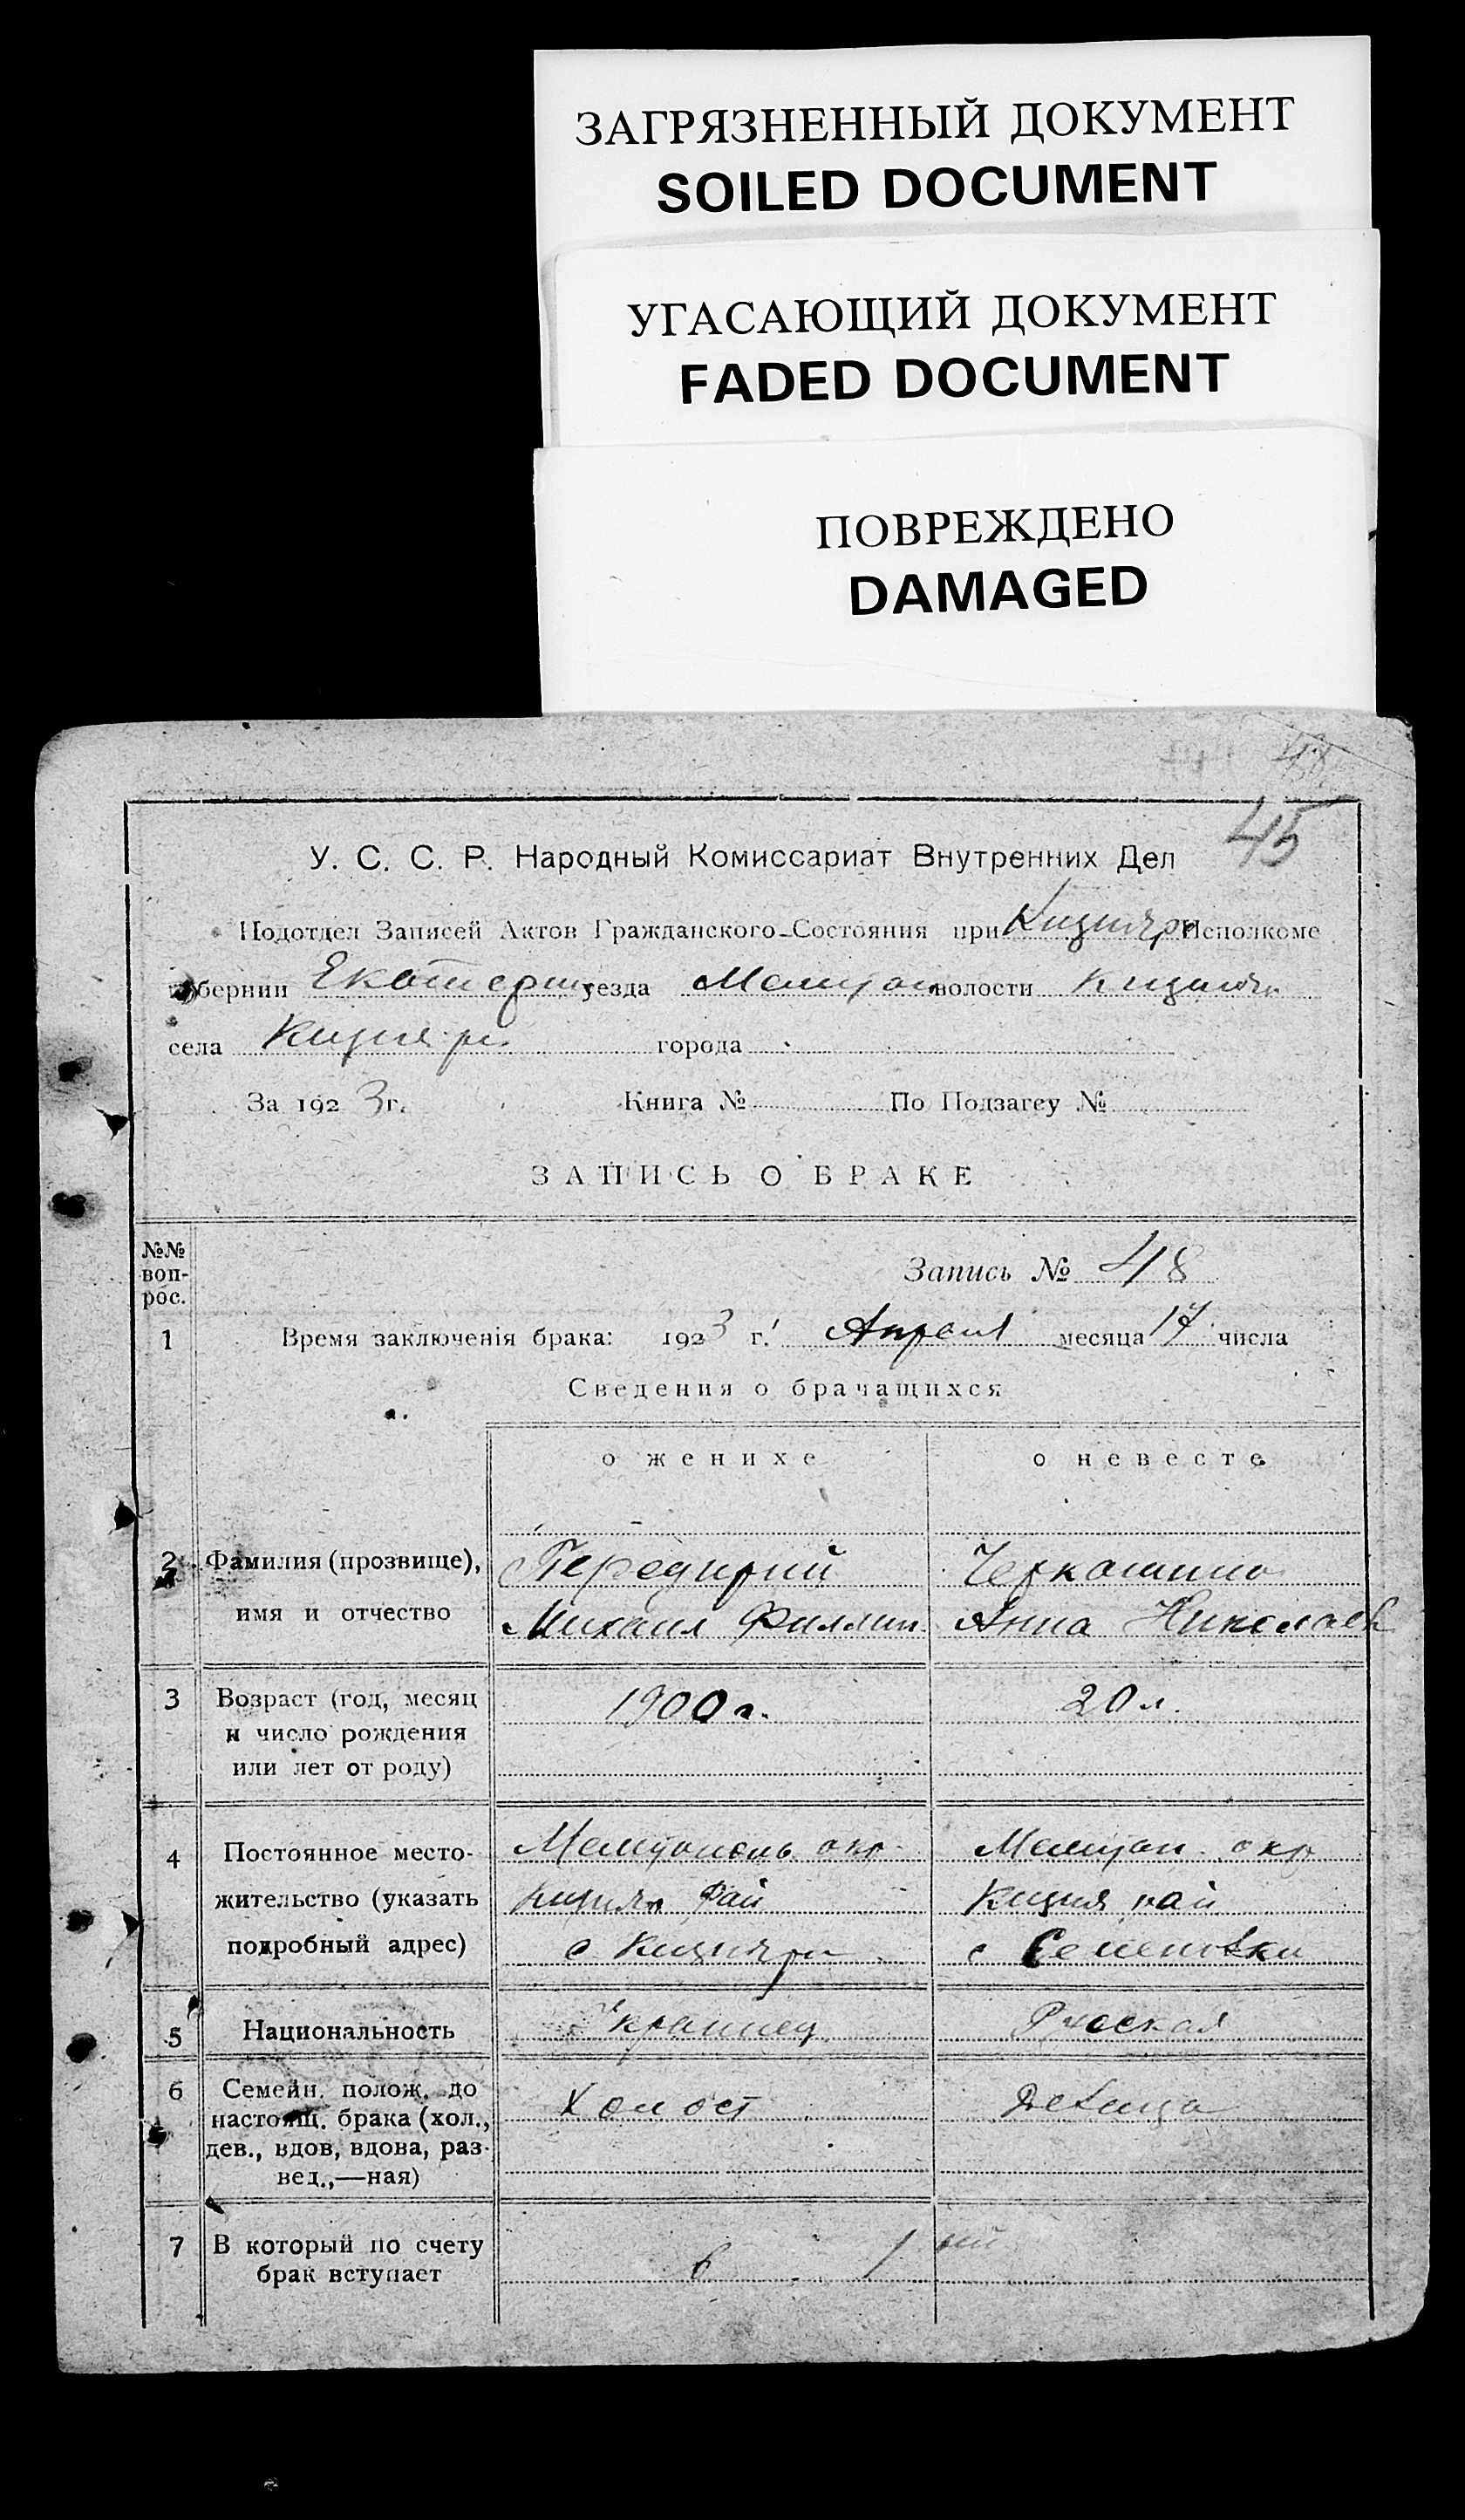 ЗАГРЯЗНЕННЫЙ ДОКУМЕНТ
SOILED DOCUMENT
УГАСАЮЩИЙ ДОКУМЕНТ
FADED DOCUMENT
ПОВРЕЖДЕНО
DAMAGED
45
У. С. С. Р. Народный Комиссариат Внутренних Дел
Подотдел Записей Актов Гражданского-Состояния при Исполкоме
бернии Екатерин уезда волости
села города
За 1923г. Книга № По Подзагсу №
ЗАПИСЬ О БРАКЕ
№№ воп-рос.
Запись № 48
1 Время заключенія брака: 1923 г. месяца 17 числа
Сведения о брачащихся
о женихе о невесте
2 Фамилия (прозвище), Передирий
имя и отчество Михаил Филлип. Анна Николаев
3 Возраст (год, месяц 1900 г. 20 л.
и число рождения
или лет от роду)
4 Постоянное место- окр. окр
жительство (указать рай рай
подробный адрес) с. с
5 Национальность Украинец Русская
6 Семейн. полож. до Холост Девица
настоящ. брака (хол.,
дев., вдов, вдова, раз-
вед.,—ная)
7 В который по счету в 1 ый
брак вступает